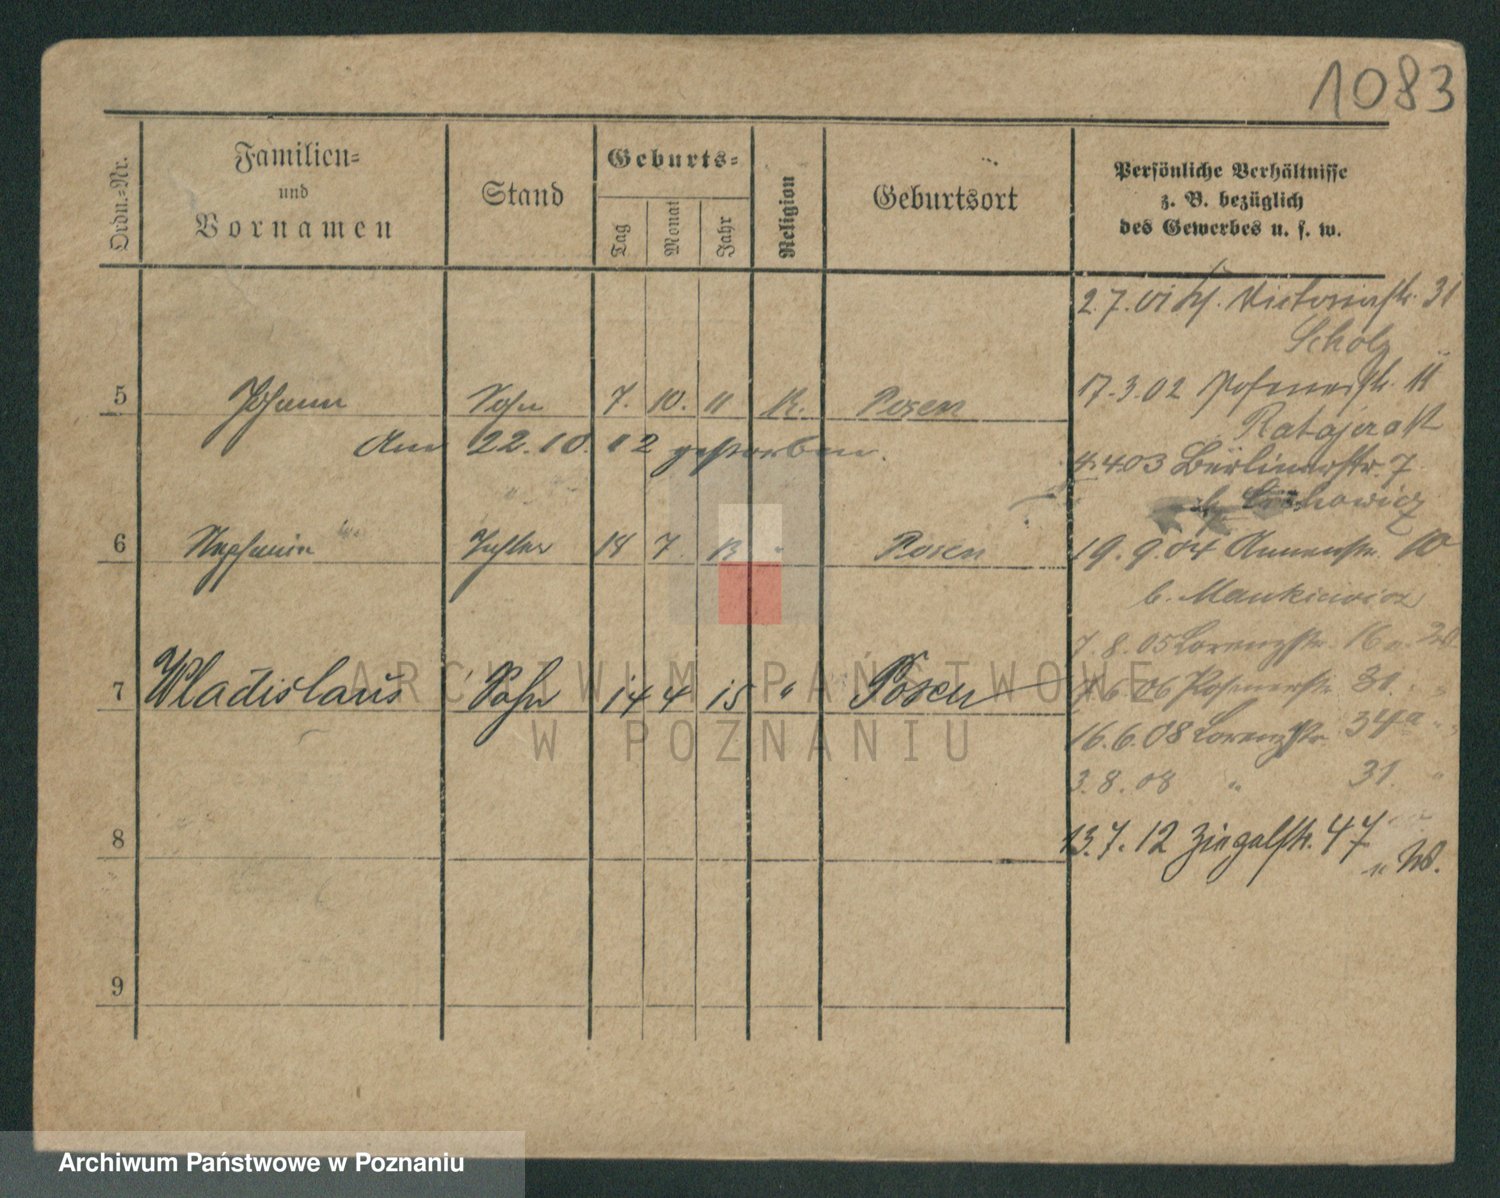 1083
Ordn.-Nr.
Familien-
und
Vornamen
Stand
Geburts-
Tag
Monat
Jahr
Religion
Geburtsort
Persönliche Verhältnisse
z. B. bezüglich
des Gewerbes u. s. w.
2.7.01 Victoriastr. 31
Scholz
5 Johann Sohn 7. 10. 11 K. Posen
17.3.02 Posenerstr. 11
Ratajczak
Am 22.10.12 gestorben.
4.4.03 Berlinerstr. 7
6 Stephanie Tochter 14 7. 13 " Posen
19.9.04 Annenstr. 10
b. Mankiewicz
7.8.05 Lorenzstr. 16
7 Wladislaus Sohn 14 4 15 " Posen
06 Posenerstr. 31.
16.6.08 Lorenzstr. 34a
3.8.08 " 31. "
8
13.7.12 Ziegelstr. 47
" W.
9
ARCHIWUM PAŃSTWOWE
W POZNANIU
Archiwum Państwowe w Poznaniu